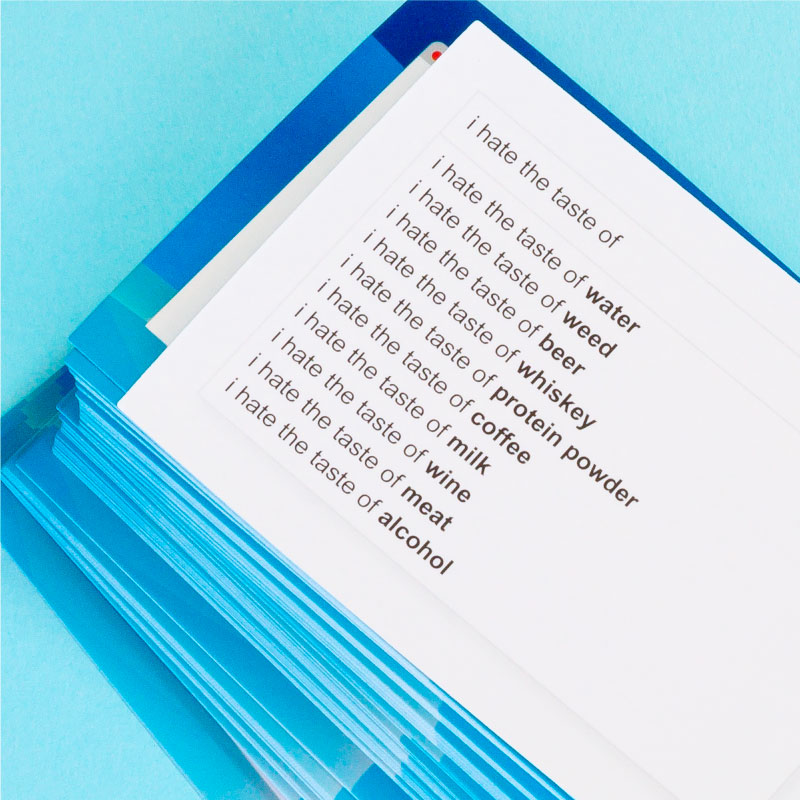 i hate the taste of
i hate the taste of water
i hate the taste of weed
i hate the taste of beer
i hate the taste of whiskey
i hate the taste of protein powder
i hate the taste of coffee
i hate the taste of milk
i hate the taste of wine
i hate the taste of meat
i hate the taste of alcohol